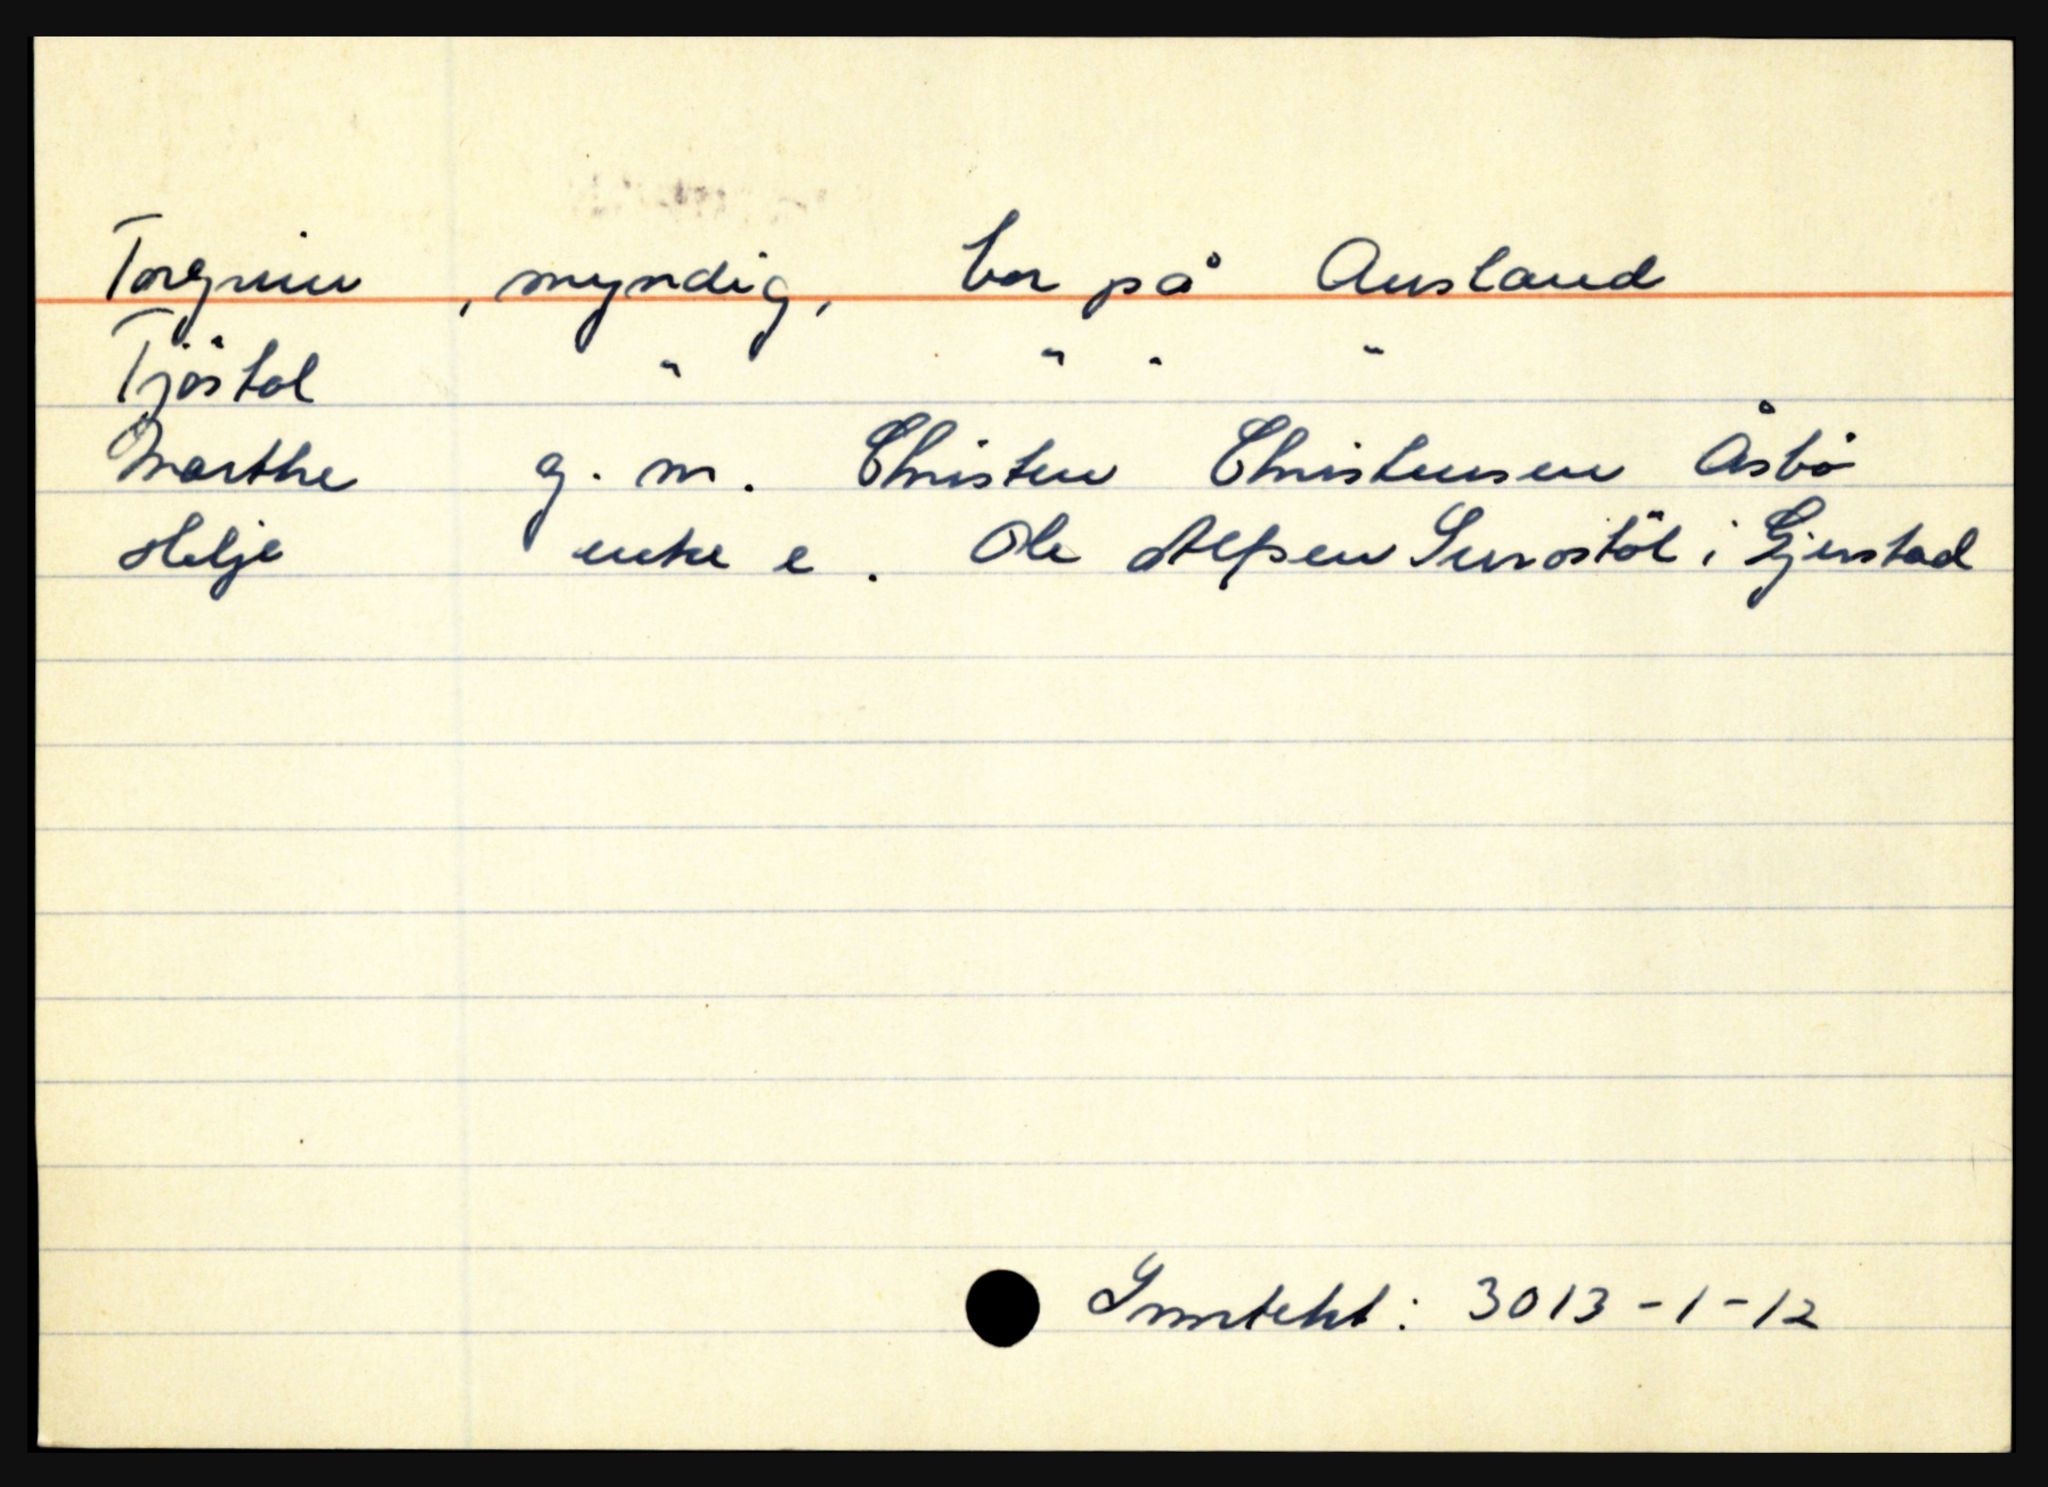 Torgrim , myndig, bor på Ausland
Tjöstol " " " "
Marthe g. m. Christen Christensen Åsbö
Helje enke e. Ole Alfsen i Gjerstad
Inntekt: 3013-1-12